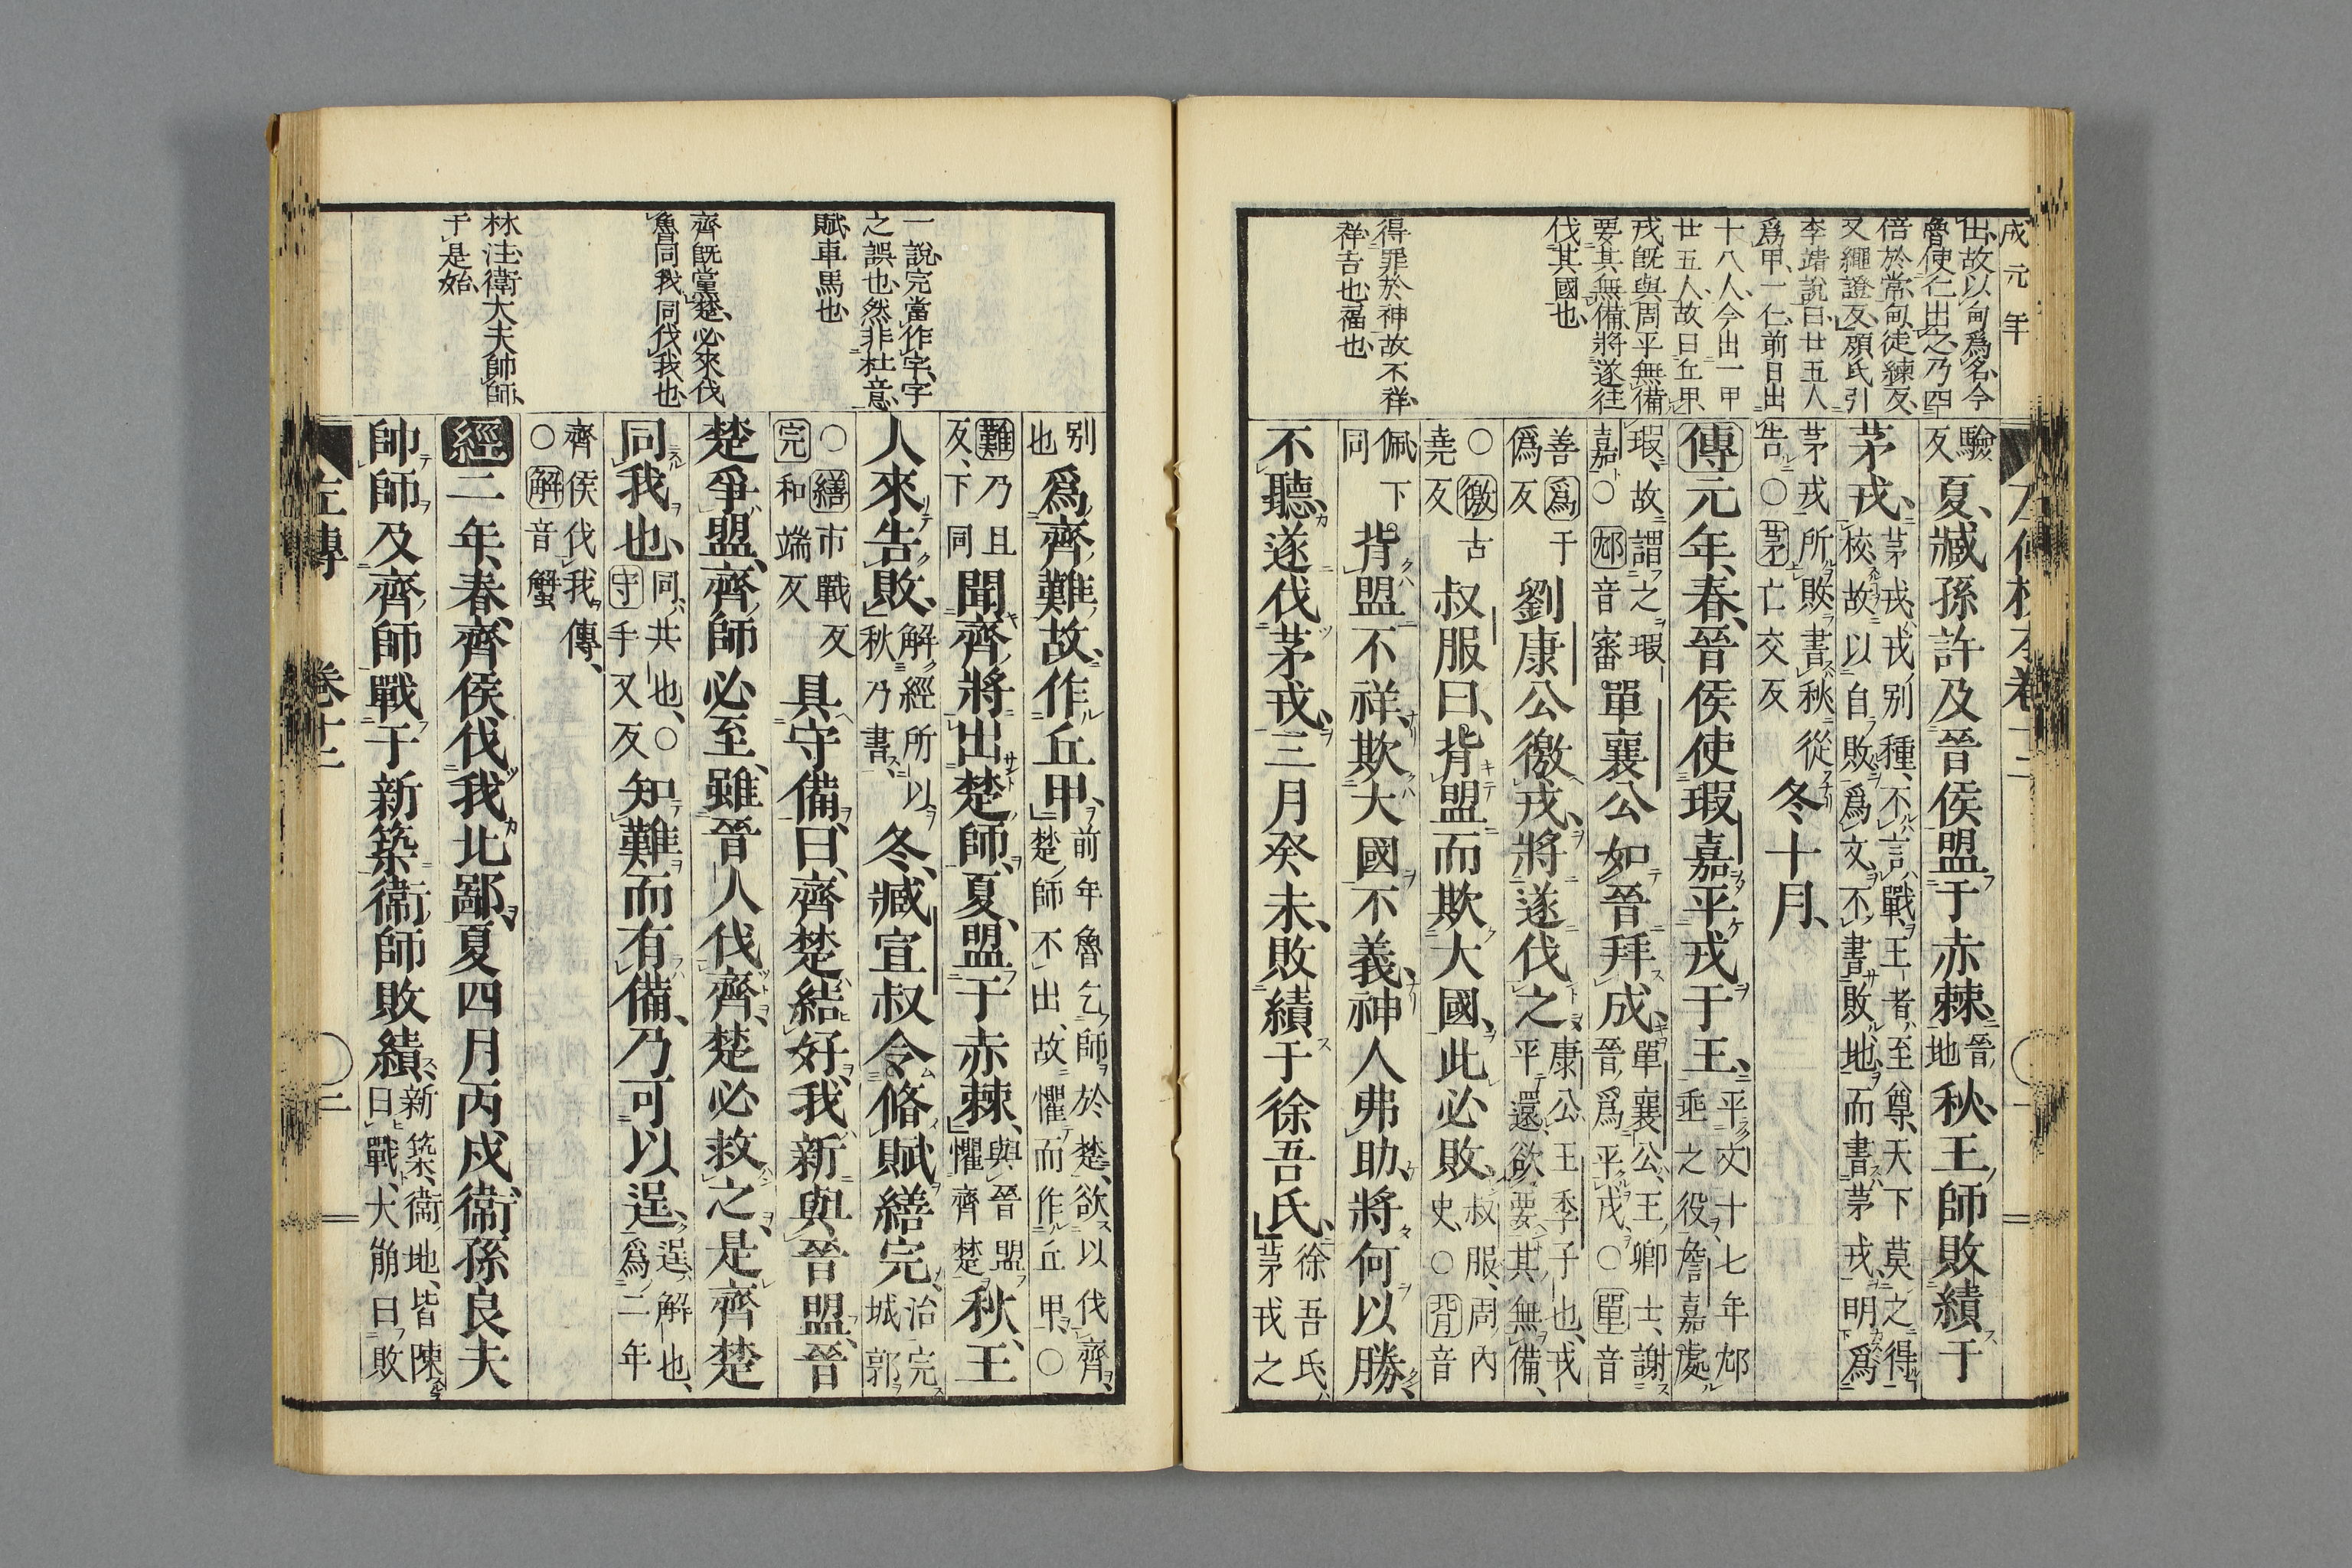 成元年
出、故以甸爲名、今
魯使仁出之、乃四
倍於常甸、徒練反、
又繩證反、項氏引
李靖説曰廿五人
爲甲、一仁、前日出
十八人、今出一甲
廿五人、故曰丘甲、
戎既與周平無備
要其無備、將遂往
伐其國也、
得罪於神故不祥、
祥吉也、福也、
驗反夏、臧孫許及晉侯盟于赤棘、晉地秋、王師敗績于
茅戎、茅戎、戎別種、不言戰、王者、至尊、天下莫之得校、故以自敗爲文、不書敗地、而書茅戎、明爲
茅戎所敗書、秋從告○茅亡交反冬十月、
傳元年、春、晉侯使瑕嘉平戎于王、平文十七年邥垂之役、詹嘉處
瑕、故謂之瑕嘉○邥音審單襄公如晉拜成、單襄公、王卿士、謝晉爲平戎、○單音
善爲于僞反劉康公徼戎、將遂伐之、康公、王季子也、戎平還、欲要其無備、
○徼古堯反叔服曰、背盟而欺大國、此必敗、叔服、周内史、○背音
佩下同背盟不祥、欺大國不義、神人弗助、將何以勝、
不聽、遂伐茅戎、三月癸未、敗績于徐吾氏、徐吾氏、茅戎之
一説、完當作字、字
之誤也、然非杜意、
賦、車馬也、
齊既黨楚、必來伐
魯同我、同伐我也、
林注、衛大夫帥師、
于是始、
別也爲齊難故、作丘甲、前年魯乞師於楚、欲以伐齊、楚師不出、故懼而作丘甲、○
難乃且反、下同聞齊將出楚師、夏、盟于赤棘、與晉盟懼齊楚秋、王
人來告敗、解經所以秋乃書冬、臧宣叔令脩賦繕完、治完城郭
○繕市戰反完和端反具守備、曰、齊楚結好、我新與晉盟、晉
楚爭盟、齊師必至、雖晉人伐齊、楚必救之、是齊楚
同我也、同、共也、○守手又反知難而有備、乃可以逞、逞、解也、爲二年
齊侯伐我傳、○解音蟹
經二年、春、齊侯伐我北鄙、夏四月丙戌、衞孫良夫
帥師及齊師戰于新築、衞師敗績、新築、衞地、皆陳曰戰、大崩曰敗
左傳 卷十二 ○二